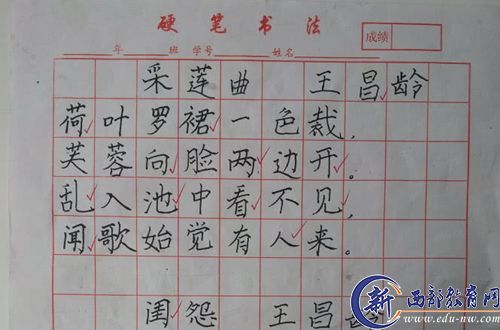 硬笔书法
成绩
年 班 学号 姓名
采莲曲 王昌龄
荷叶罗裙一色裁,
芙蓉向脸两边开。
乱入池中看不见,
闻歌始觉有人来。
闺怨 王昌龄
新 西部教育网
www.edu-nw.com